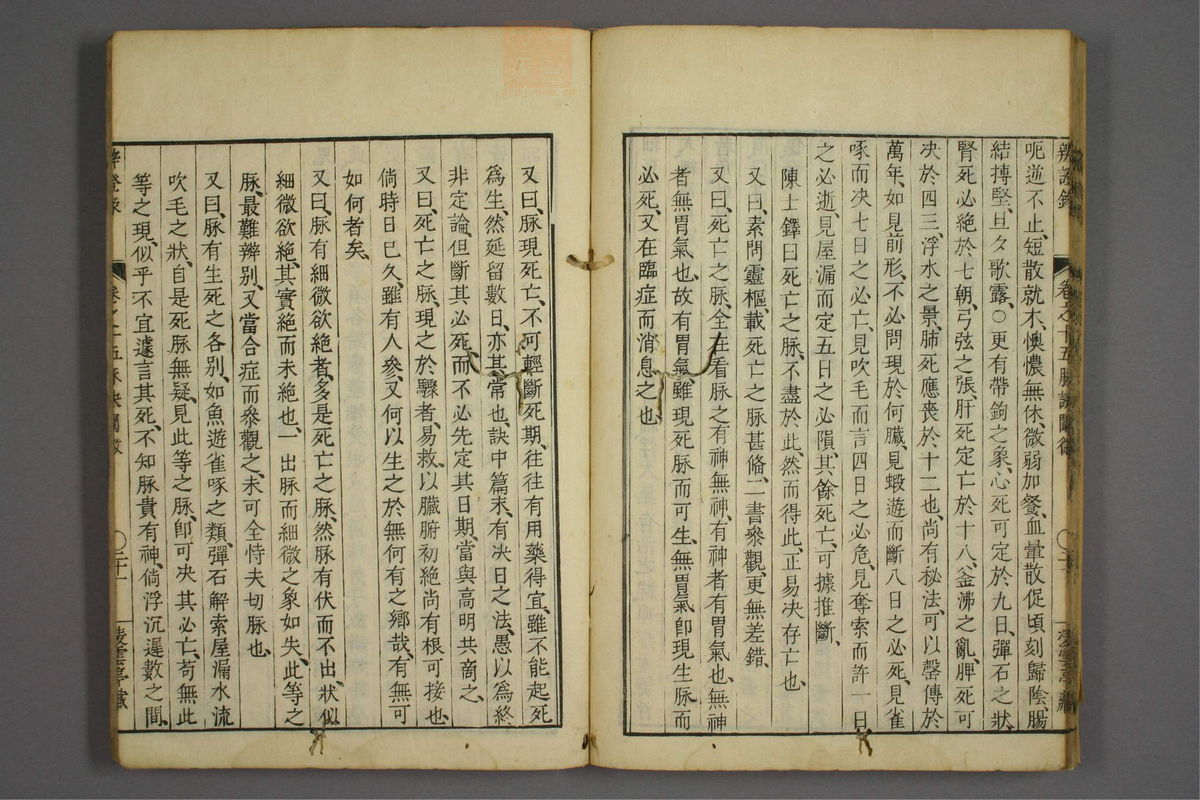 辨證錄 卷之十五脉訣闡微
呃逆不止、短散就木、懊憹無休、微弱加餐、血暈散促、頃刻歸陰、腸
結摶堅、旦夕歌露、○更有帶鉤之象、心死可定於九日、彈石之狀、
腎死必絕於七朝、弓弦之張、肝死定亡於十八、釜沸之亂、脾死可
决於四三、浮水之景、肺死應喪於十二也、尚有秘法、可以罄傳於
萬年、如見前形、不必問現於何臟、見蝦遊而斷八日之必死、見雀
啄而决七日之必亡、見吹毛而言四日之必危、見奪索而許一日
之必逝、見屋漏而定五日之必隕、其餘死亡、可據推斷、
陳士鐸曰死亡之脉、不盡於此、然而得此、正易决存亡也、
又曰、素問靈樞、載死亡之脉甚俻、二書叅觀、更無差錯、
又曰、死亡之脉、全在看脉之有神無神、有神者有胃氣也、無神
者無胃氣也、故有胃氣、雖現死脉而可生、無胃氣卽現生脉而
必死、又在臨症而消息之也、
又曰、脉現死亡、不可輕斷死期、往往有用藥得宜、雖不能起死
爲生、然延留數日、亦其常也、訣中篇末、有决日之法、愚以爲終
非定論、但斷其必死、而不必先定其日期、當與高明共商之、
又曰、死亡之脉、現之於驟者、易救、以臟腑初絕、尚有根可接也、
倘時日已久、雖有人參、又何以生之於無何有之鄉哉、有無可
如何者矣、
又曰、脉有細微欲絕者、多是死亡之脉、然脉有伏而不出、狀似
細微欲絕、其實絕而未絕也、一出脉而細微之象如失、此等之
脉、最難辨别、又當合症而叅觀之、未可全恃夫切脉也、
又曰、脉有生死之各别、如魚遊雀啄之類、彈石解索屋漏水流
吹毛之狀、自是死脉無疑、見此等之脉、卽可决其必亡、苟無此
等之現、似乎不宜遽言其死、不知脉貴有神、倘浮沉遲數之間、
卷之十五脉訣闡微